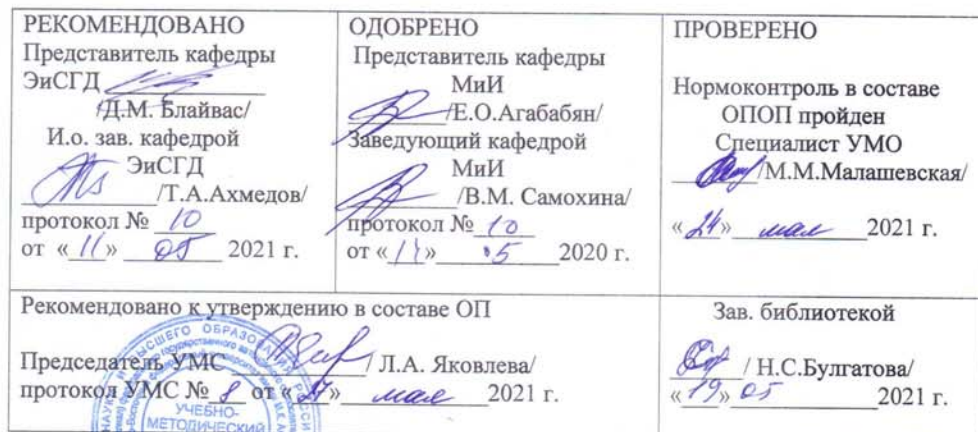 РЕКОМЕНДОВАНО
Представитель кафедры
ЭиСГД
/Д.М. Блайвас/
И.о. зав. кафедрой
ЭиСГД
/Т.А.Ахмедов/
протокол № 10
от «11» 05 2021 г.
ОДОБРЕНО
Представитель кафедры
МиИ
/Е.О.Агабабян/
Заведующий кафедрой
МиИ
/В.М. Самохина/
протокол № 10
от «11» 05 2020 г.
ПРОВЕРЕНО
Нормоконтроль в составе
ОПОП пройден
Специалист УМО
/М.М.Малашевская/
«24» мая 2021 г.
Рекомендовано к утверждению в составе ОП
Председатель УМС / Л.А. Яковлева/
протокол УМС № 8 от «27» мая 2021 г.
УЧЕБНО-
МЕТОДИЧЕСКИЙ
Зав. библиотекой
/ Н.С.Булгатова/
«19» 05 2021 г.